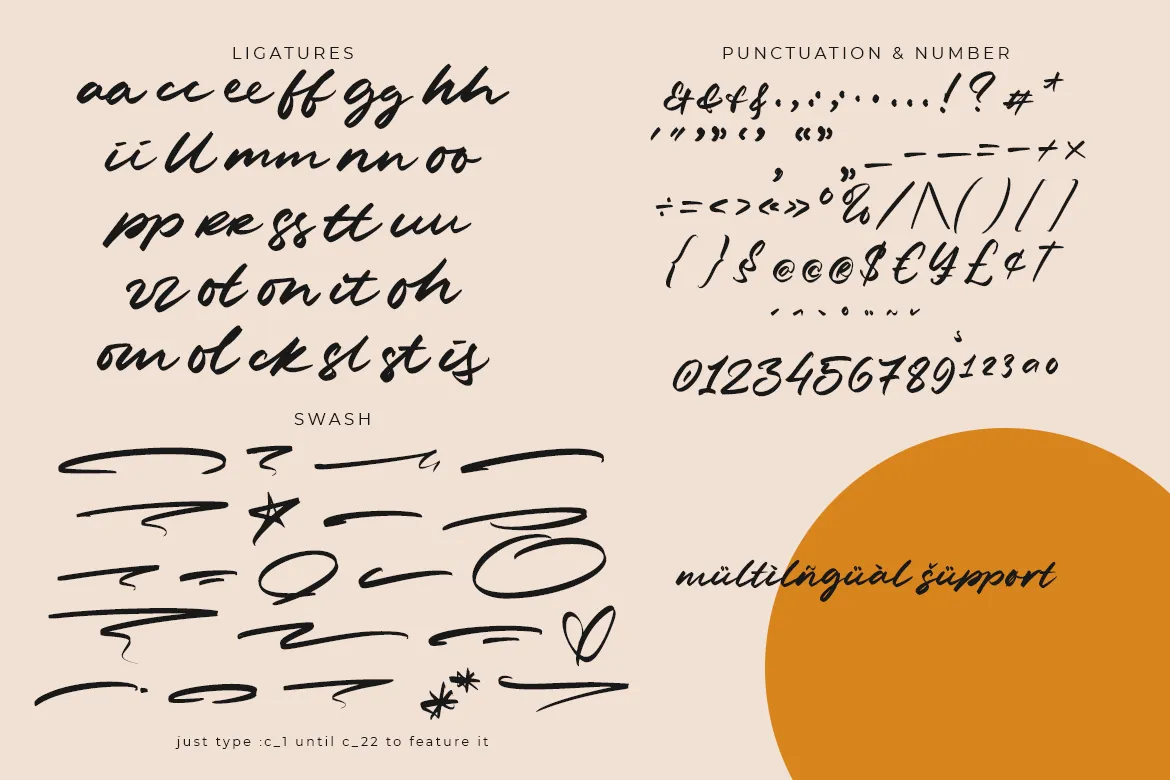 LIGATURES
aa cc ee ff gg hh
ii ll mm nn oo
pp RR ss tt uu
zz ot on it oh
om ol ck sl st is
SWASH
just type :c_1 until c_22 to feature it
PUNCTUATION & NUMBER
& & & & . , : ; · • … ! ? # *
' " ’ ” ‘ ’ “ ”
‚ „ _ – — = − + ×
÷ = < > « » ° % / | \ ( ) [ ]
{ } § @ © ® $ € ¥ £ ¢ †
´ ^ ` ° ¨ ~ ˇ
¸
0123456789 1 2 3 a o
mültìlñgüàl šüpport